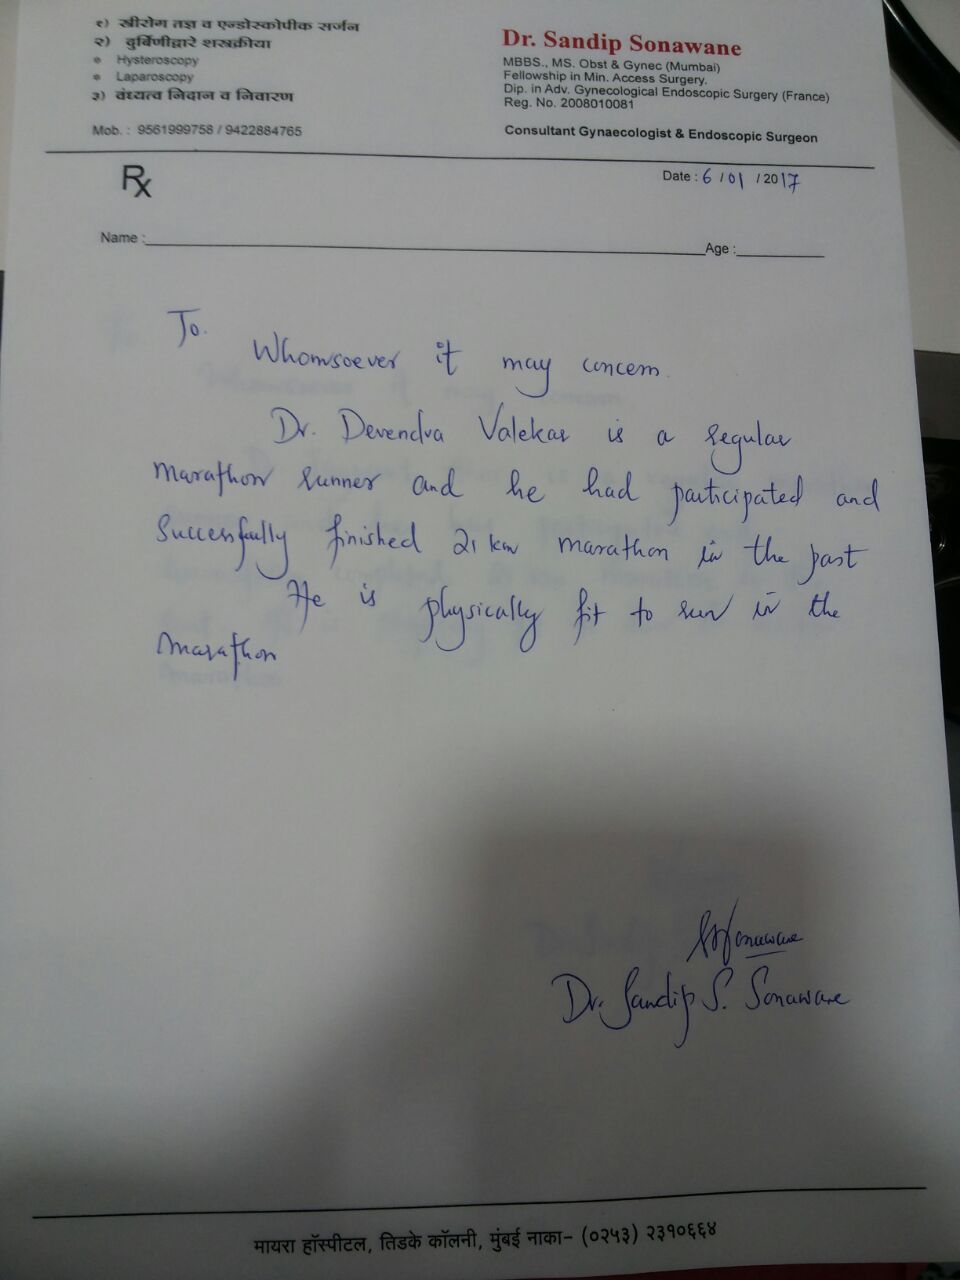 १) स्त्रीरोग तज्ञ व एन्डोस्कोपीक सर्जन
२) दुर्बिणीद्वारे शस्त्रक्रीया
* Hysteroscopy
* Laparoscopy
३) वंध्यत्व निदान व निवारण
Mob. : 9561999758 / 9422884765
Dr. Sandip Sonawane
MBBS., MS. Obst & Gynec (Mumbai)
Fellowship in Min. Access Surgery.
Dip. in Adv. Gynecological Endoscopic Surgery (France)
Reg. No. 2008010081
Consultant Gynaecologist & Endoscopic Surgeon
Rx
Date : 6 / 01 / 2017
Name :
Age :
To.
Whomsoever it may concern.
Dr. Devendra Valekar is a regular
marathon runner and he had participated and
Successfully finished 21 km marathon in the past
He is physically fit to run in the
marathon
SSSonawane
Dr. Sandip S. Sonawane
मायरा हॉस्पीटल, तिडके कॉलनी, मुंबई नाका– (०२५३) २३१०६६४